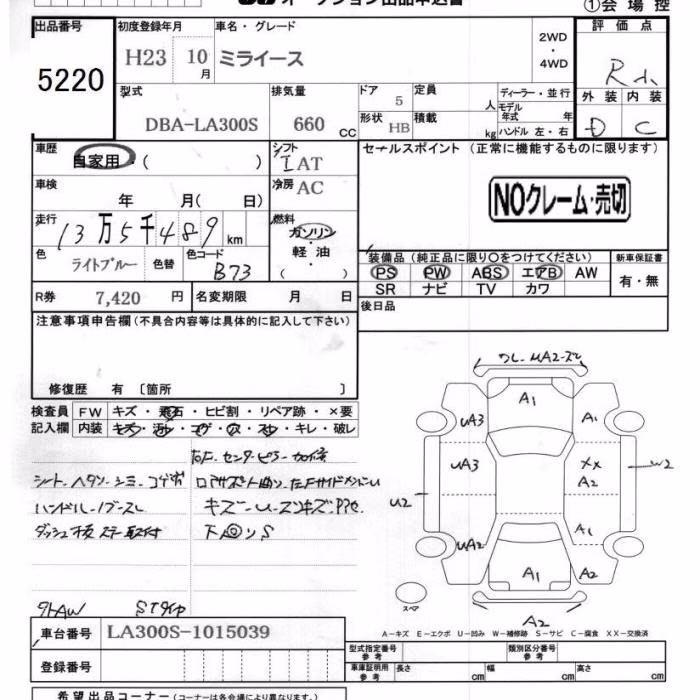 オークション出品申込書
①会場控
出品番号 初度登録年月 車名・グレード 評価点
5220 H23 10月 ミライース 2WD・4WD R
型式 排気量 ドア 定員 ディーラー・並行 外装 内装
DBA-LA300S 660 CC 5 人 モデル年式 年 D C
形状 HB 積載 kg ハンドル 左・右
車歴 自家用・( ) シフト IAT セールスポイント (正常に機能するものに限ります)
車検 年 月( 日) 冷房 AC NOクレーム・売切
走行 13万5千489km 燃料 ガソリン・軽油・( )
色 ライトブルー 色替 色コード B73
装備品(純正品に限り○をつけてください) 新車保証書
PS PW ABS エアB AW 有・無
SR ナビ TV カワ
R券 7,420 円 名変期限 月 日 後日品
注意事項申告欄(不具合内容等は具体的に記入して下さい)
修復歴 有 〔箇所 〕
検査員記入欄 FW キズ・飛石・ヒビ割・リペア跡・×要
内装 キズ・汚レ・コゲ・穴・スレ・キレ・破レ
シート ヘタリ シミ コゲ
ハンドル
ダッシュ板 ステー取付
社外AW
A1
UA3 A1
UA3 XX
A2
U2 W2
A1
UA2 A1 A2
スペア
A2
A-キズ E-エクボ U-凹み W-補修跡 S-サビ C-腐食 XX-交換済
車台番号 LA300S-1015039
型式指定番号 参考 類別区分番号 参考
登録番号 車庫証明用 参考 長さ cm 幅 cm 高さ cm
希望出品コーナー(コーナーは各会場により異なります。)